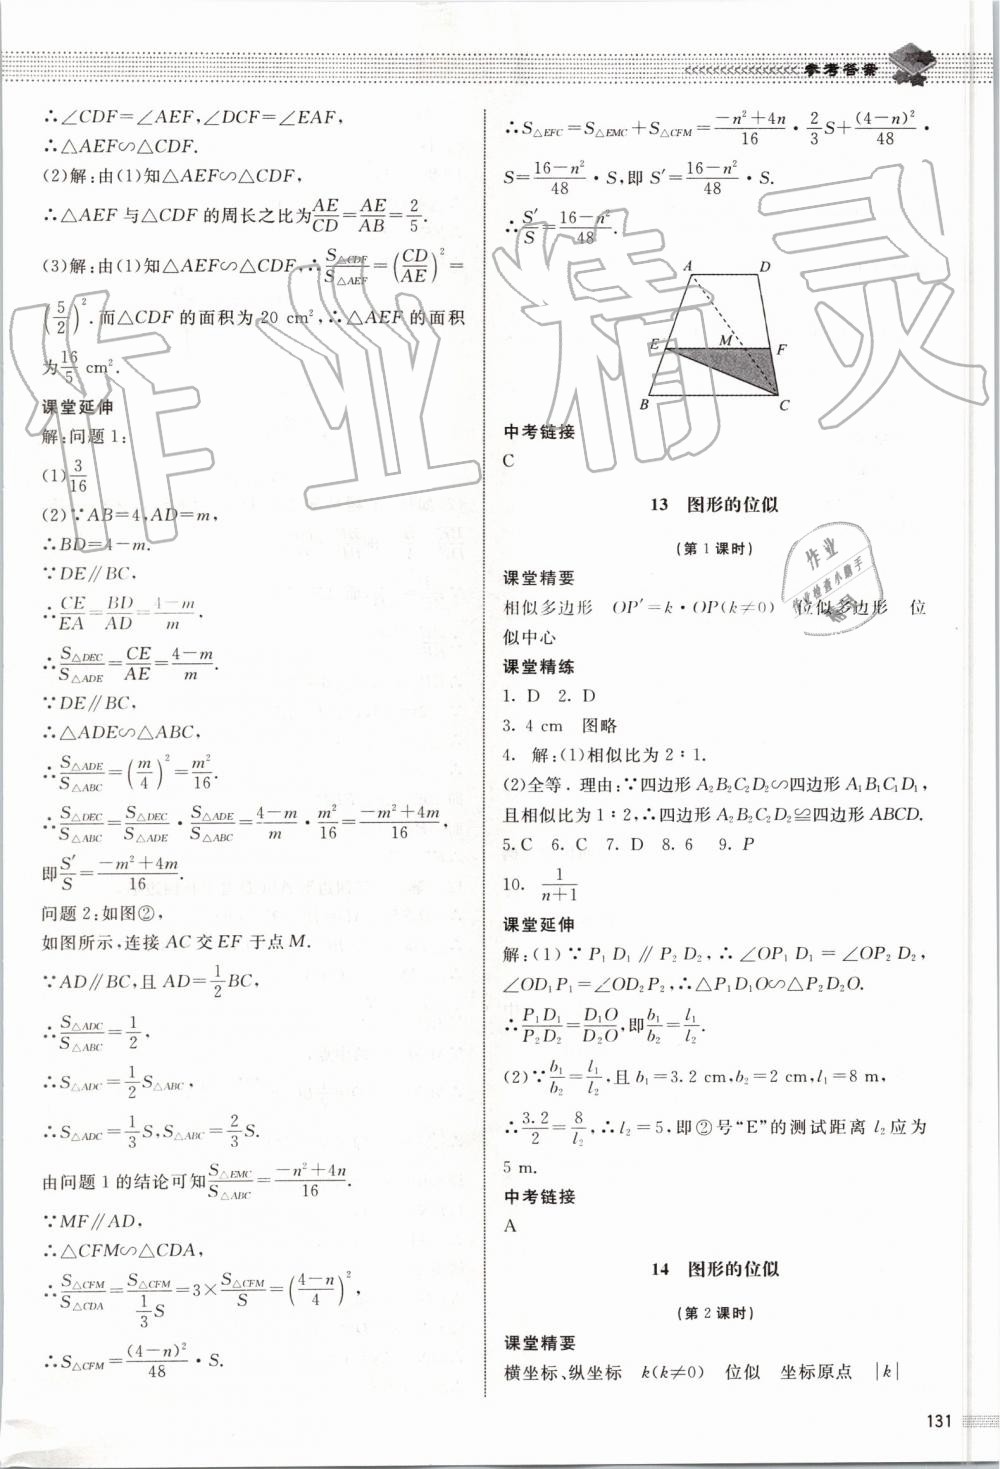 参考答案
∴∠CDF=∠AEF,∠DCF=∠EAF,
∴△AEF∽△CDF.
(2)解:由(1)知△AEF∽△CDF,
∴△AEF 与△CDF 的周长之比为AE/CD=AE/AB=2/5.
(3)解:由(1)知△AEF∽△CDF,∴S△CDF/S△AEF=(CD/AE)²=
(5/2)².而△CDF 的面积为 20 cm²,∴△AEF 的面积
为16/5 cm².
课堂延伸
解:问题 1:
(1)3/16
(2)∵AB=4,AD=m,
∴BD=4-m.
∵DE∥BC,
∴CE/EA=BD/AD=(4-m)/m.
∴S△DEC/S△ADE=CE/AE=(4-m)/m.
∵DE∥BC,
∴△ADE∽△ABC,
∴S△ADE/S△ABC=(m/4)²=m²/16.
∴S△DEC/S△ABC=S△DEC/S△ADE·S△ADE/S△ABC=(4-m)/m·m²/16=(-m²+4m)/16,
即S′/S=(-m²+4m)/16.
问题 2:如图②,
如图所示,连接 AC 交 EF 于点 M.
∵AD∥BC,且 AD=1/2BC,
∴S△ADC/S△ABC=1/2,
∴S△ADC=1/2S△ABC,
∴S△ADC=1/3S,S△ABC=2/3S.
由问题 1 的结论可知S△EMC/S△ABC=(-n²+4n)/16.
∵MF∥AD,
∴△CFM∽△CDA,
∴S△CFM/S△CDA=S△CFM/(1/3S)=3×S△CFM/S=((4-n)/4)²,
∴S△CFM=(4-n)²/48·S.
∴S△EFC=S△EMC+S△CFM=(-n²+4n)/16·2/3S+(4-n)²/48·
S=(16-n²)/48·S,即 S′=(16-n²)/48·S.
∴S′/S=(16-n²)/48.
A D
E M F
B C
中考链接
C
13 图形的位似
(第 1 课时)
课堂精要
相似多边形 OP′=k·OP(k≠0) 位似多边形 位
似中心
课堂精练
1. D 2. D
3. 4 cm 图略
4. 解:(1)相似比为 2∶1.
(2)全等. 理由:∵四边形 A₂B₂C₂D₂∽四边形 A₁B₁C₁D₁,
且相似比为 1∶2,∴四边形 A₂B₂C₂D₂≌四边形 ABCD.
5. C 6. C 7. D 8. 6 9. P
10. 1/(n+1)
课堂延伸
解:(1)∵P₁D₁∥P₂D₂,∴∠OP₁D₁=∠OP₂D₂,
∠OD₁P₁=∠OD₂P₂,∴△P₁D₁O∽△P₂D₂O.
∴P₁D₁/P₂D₂=D₁O/D₂O,即b₁/b₂=l₁/l₂.
(2)∵b₁/b₂=l₁/l₂,且 b₁=3.2 cm,b₂=2 cm,l₁=8 m,
∴3.2/2=8/l₂,∴l₂=5,即②号“E”的测试距离 l₂应为
5 m.
中考链接
A
14 图形的位似
(第 2 课时)
课堂精要
横坐标、纵坐标 k(k≠0) 位似 坐标原点 |k|
131
作业精灵
作业
作业检查小助手
精灵